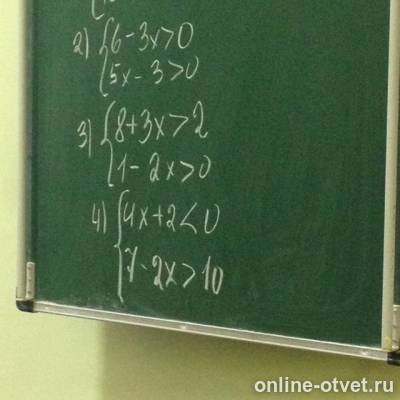 2) { 6 - 3x > 0
{ 5x - 3 > 0
3) { 8 + 3x > 2
{ 1 - 2x > 0
4) { 4x + 2 < 0
{ 7 - 2x > 10
online-otvet.ru